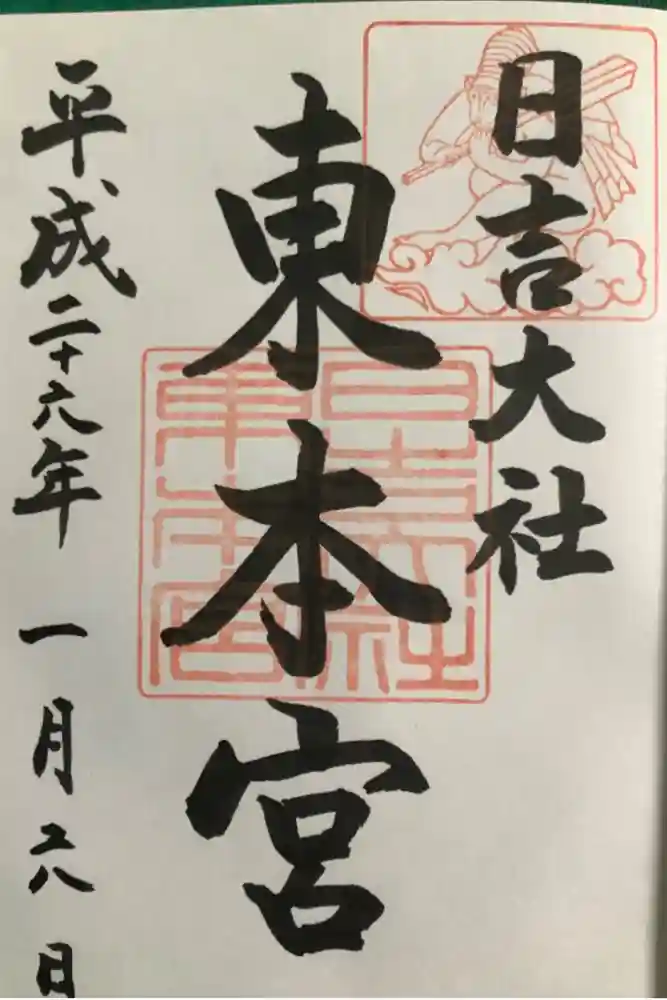 日吉大社
東本宮
平成二十六年 一月六日
日吉大社
東本宮